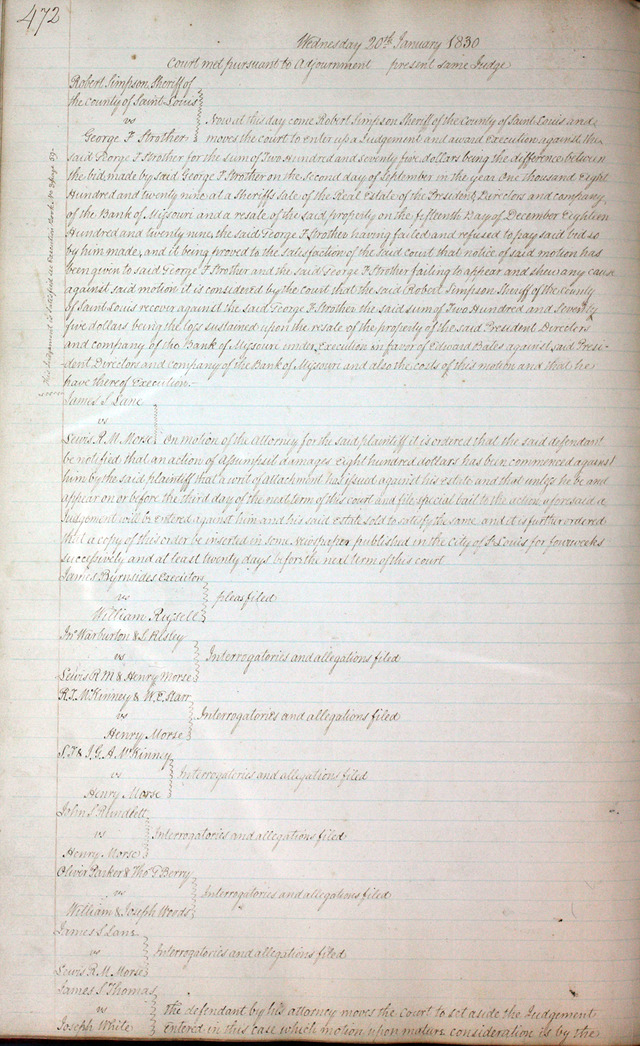 472
Wednesday 20th January 1830
Court met pursuant to Adjournment present same Judge
Robert Simpson Sheriff of
the County of Saint Louis
vs
George F Strother
Now at this day come Robert Simpson Sheriff of the County of Saint Louis and
moves the court to enter up a Judgement and award Execution against the
said George F Strother for the sum of Two Hundred and seventy five dollars being the difference between
the bid made by said George F Strother on the second day of September in the year One thousand Eight
Hundred and twenty nine at a Sheriffs Sale of the Real Estate of the President, Directors and company
of the Bank of Missouri and a resale of the said property on the fifteenth Day of December Eighteen
Hundred and twenty nine, the said George F Strother having failed and refused to pay said bid so
by him made, and it being proved to the satisfaction of the said Court that notice of said motion has
been given to said George F Strother and the said George F Strother failing to appear and shew any cause
against said motion it is considered by the court that the said Robert Simpson Sheriff of the County
of Saint Louis recover against the said George F Strother the said sum of Two Hundred and Seventy
five dollars being the loss sustained upon the resale of the property of the said President Directers
and company of the Bank of Missouri under Execution in favor of Edward Bates against said Presi-
dent Directors and company of the Bank of Missouri and also the costs of this motion and that he
have thereof Execution.-
This Judgement is Satisfied see Execution Book No page 89.
James S Lane
vs
Lewis R. M. Morse
On motion of the Attorney for the said plaintiff it is ordered that the said defendant
be notified that an action of Assumpsit damages Eight hundred dollars has been commenced against
him by the said plaintiff that a writ of attachment has issued against his estate and that unless he be and
appear on or before the third day of the next term of this court and file special bail to the action aforesaid a
Judgement will be entered against him and his said estate sold to satisfy the same and it is further ordered
that a copy of this order be inserted in some Newspaper published in the City of St Louis for four weeks
successively and at least twenty days before the next term of this court
James Byrnsides Executors
vs
William Russell
pleas filed
Jno Warburton & L Risley
vs
Lewis R. M & Henry Morse
Interrogatories and allegations filed
R. T. McKinney & W. E. Starr
vs
Henry Morse
Interrogatories and allegations filed
S. T & J. G. A. McKinney
vs
Henry Morse
Interrogatories and allegations filed
John S Rundlett
vs
Henry Morse
Interrogatories and allegations filed
Oliver Parker & Tho T Berry
vs
William & Joseph Woods
Interrogatories and allegations filed
James S Lane
vs
Lewis R. M. Morse
Interrogatories and allegations filed
James S Thomas
vs
Joseph White
the defendant by his attorney moves the Court to set aside the Judgement
entered in this case which motion upon mature consideration is by the